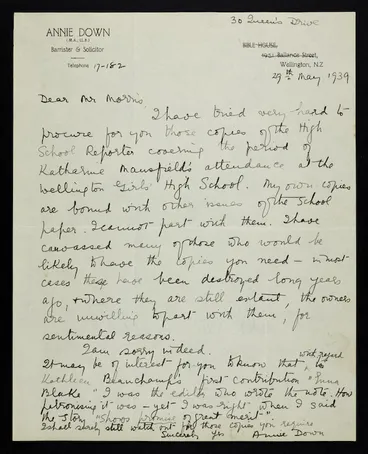 30 Queen's Drive
ANNIE DOWN
(M.A., LL.B.)
Barrister & Solicitor
Telephone 17-182
BIBLE HOUSE,
Ballance Street,
Wellington, N.Z
29th May 1939
Dear Mr Morris,
I have tried very hard to
procure for you those copies of the High
School Reporter covering the period of
Katharine Mansfield's attendance at the
Wellington Girls' High School. My own copies
are bound with other issues of the School
paper. I cannot part with them. I have
canvassed many of those who would be
likely to have the copies you need – in most
cases these have been destroyed long years
ago, & where they are still extant, the owners
are unwilling to part with them, for
sentimental reasons.
I am sorry indeed.
It may be of interest for you to know that, with regard to
Kathleen Beauchamp's first contribution "Enna
Blake" I was the editor who wrote the note. How
patronising it was – yet I was right when I said
the story "Shows promise of great merit".
I shall surely still watch out for those copies you require
Sincerely Yrs Annie Down